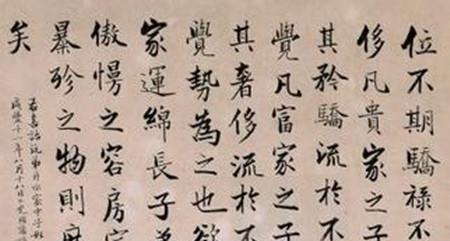 位不期驕祿不
侈凡貴家之子
其矜驕流於不
覺凡富家之子
其奢侈流於不
覺勢為之也欲
家運綿長子弟
傲慢之容房室
暴殄之物則庶
矣
咸豐十一年八月十八日